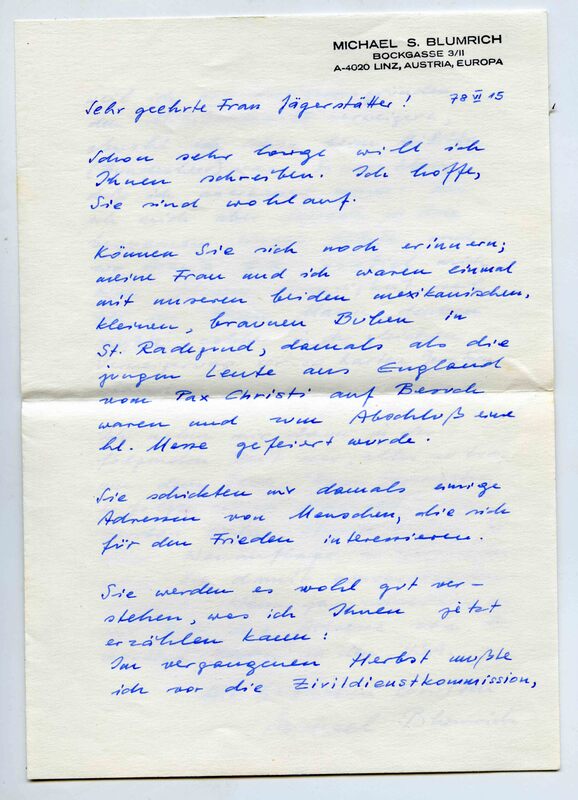 MICHAEL S. BLUMRICH
BOCKGASSE 3/II
A-4020 LINZ, AUSTRIA, EUROPA
Sehr geehrte Frau Jägerstätter! 78 VI 15
Schon sehr lange will ich
Ihnen schreiben. Ich hoffe,
Sie sind wohlauf.
Können Sie sich noch erinnern;
meine Frau und ich waren einmal
mit unseren beiden mexikanischen,
kleinen, braunen Buben in
St. Radegund, damals als die
jungen Leute aus England
vom Pax Christi auf Besuch
waren und zum Abschluß eine
hl. Messe gefeiert wurde.
Sie schickten mir damals einige
Adressen von Menschen, die sich
für den Frieden interessieren.
Sie werden es wohl gut ver-
stehen, was ich Ihnen jetzt
erzählen kann:
Im vergangenen Herbst mußte
ich vor die Zivildienstkommission,